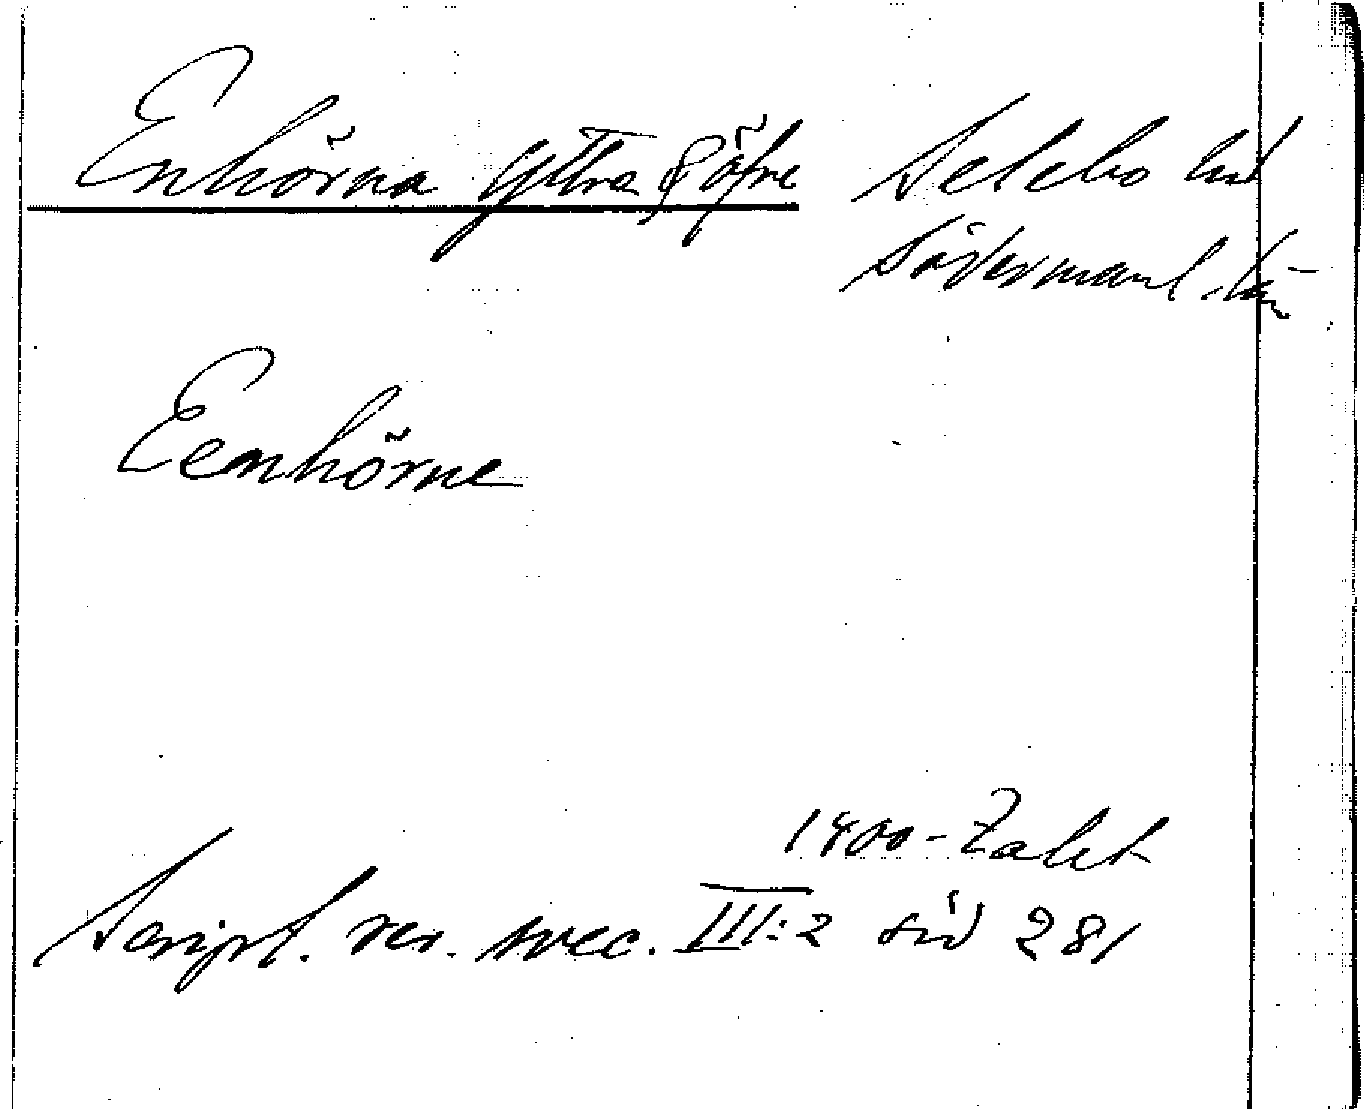 Enhörna Yttre & Öfre Selebo hd
Södermanl. län
Eenhörne
1400-Talet
Script. rer. svec. III:2 sid 281